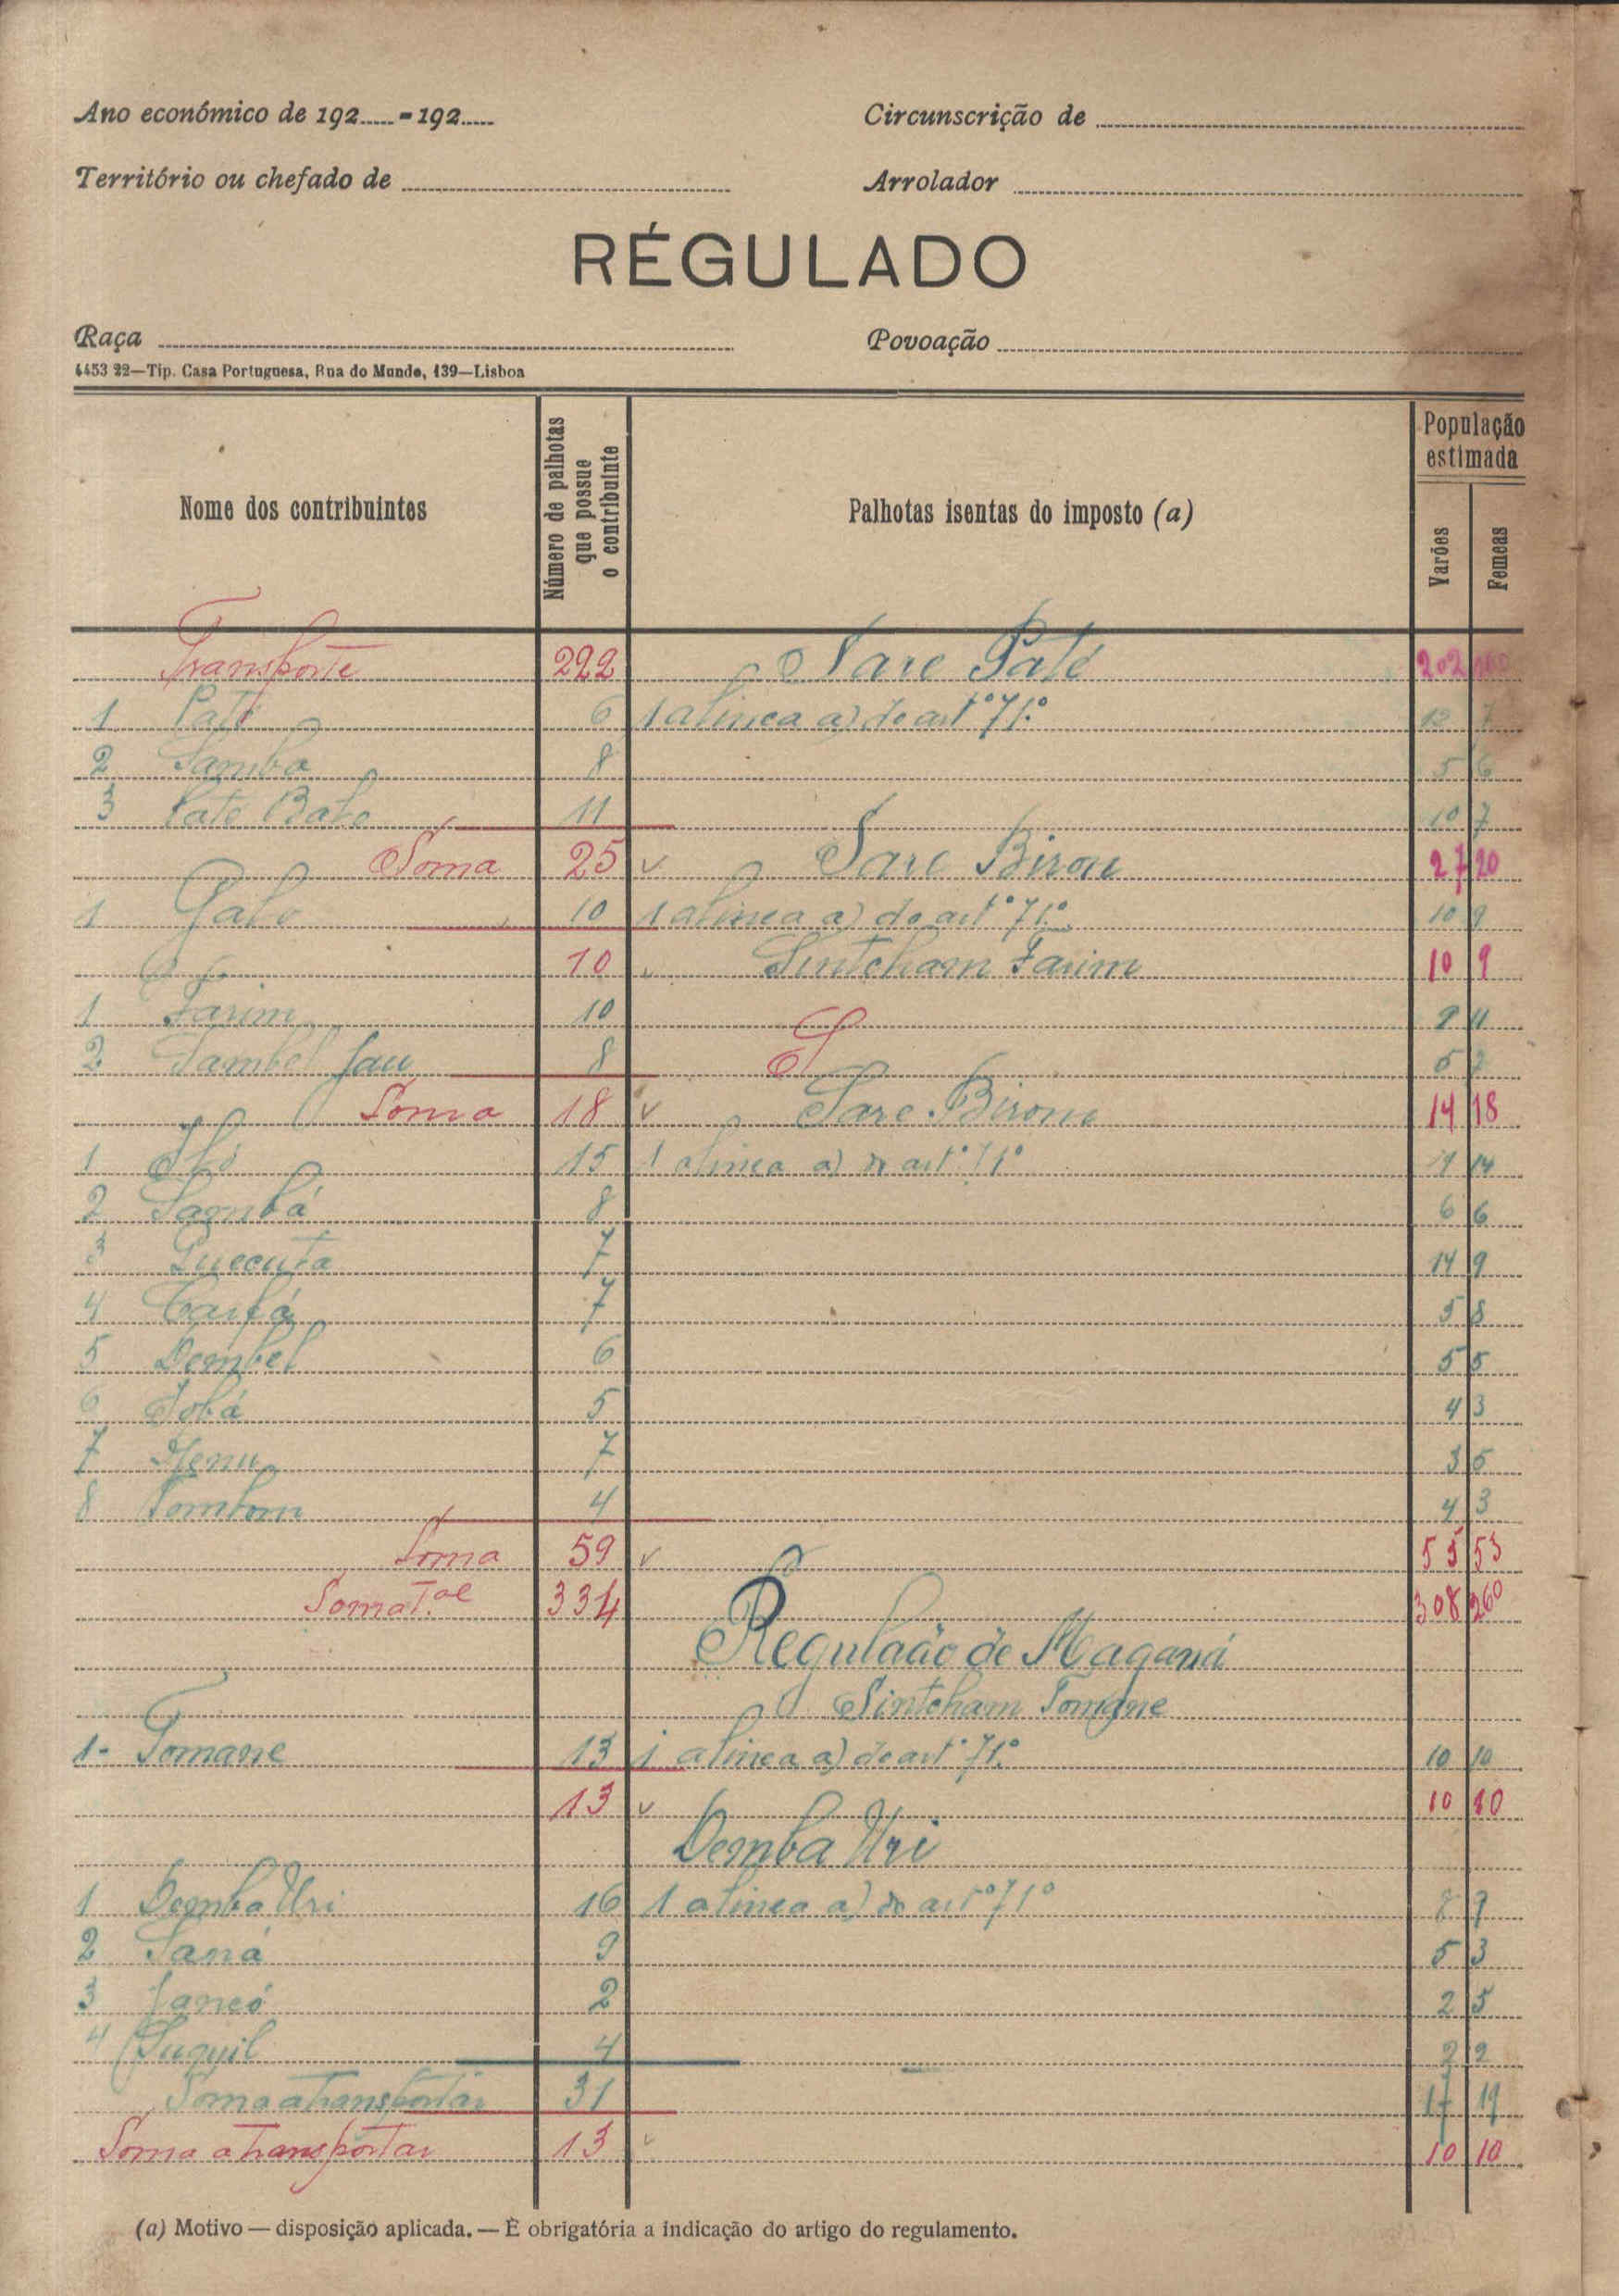 Ano económico de 192.....-192..... Circunscrição de
Território ou chefado de Arrolador
RÉGULADO
Raça Povoação
4453 22—Tip. Casa Portuguesa, Rua do Mundo, 139—Lisboa
Nome dos contribuintes Número de palhotas que possue o contribuinte Palhotas isentas do imposto (a) População estimada Varões Femeas
Transporte 222 Sare Paté 202 160
1 Paté 6 1 alinea a) do artº 71º 12 7
2 Samba 8 5 6
3 Paté Balo 11 10 7
Soma 25 v Sare Birou 27 20
1 Galo 10 1 alinea a) do artº 71º 10 9
10 v Sintcham Farim 10 9
1 Farim 10 9 11
2 Sambel Jau 8 5 7
Soma 18 v Sare Birone 14 18
1 15 1 alinea a) do artº 71º 14 14
2 Sambá 8 6 6
3 7 14 9
4 7 5 8
5 Dembel 6 5 5
6 Jobá 5 4 3
7 7 3 5
8 Tombom 4 4 3
Soma 59 v 55 53
Soma T.al 334 308 260
Regulado de Maganá
Sintcham Tomane
1- Tomane 13 1 alinea a) do artº 71º 10 10
13 v 10 10
Demba Uri
1 Demba Uri 16 1 alinea a) do artº 71º 8 9
2 Saná 9 5 3
3 Jancó 2 2 5
4 4 2 2
Soma a transportar 31 17 19
Soma a transportar 13 v 10 10
(a) Motivo — disposição aplicada. — É obrigatória a indicação do artigo do regulamento.